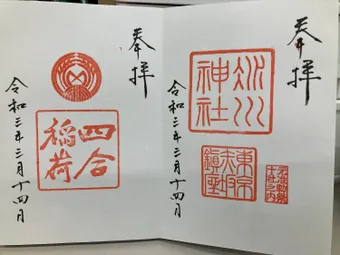 奉拝
氷川
神社
東京
赤坂
鎮座
令和三年三月十四日
奉拝
四合
稲荷
令和三年三月十四日